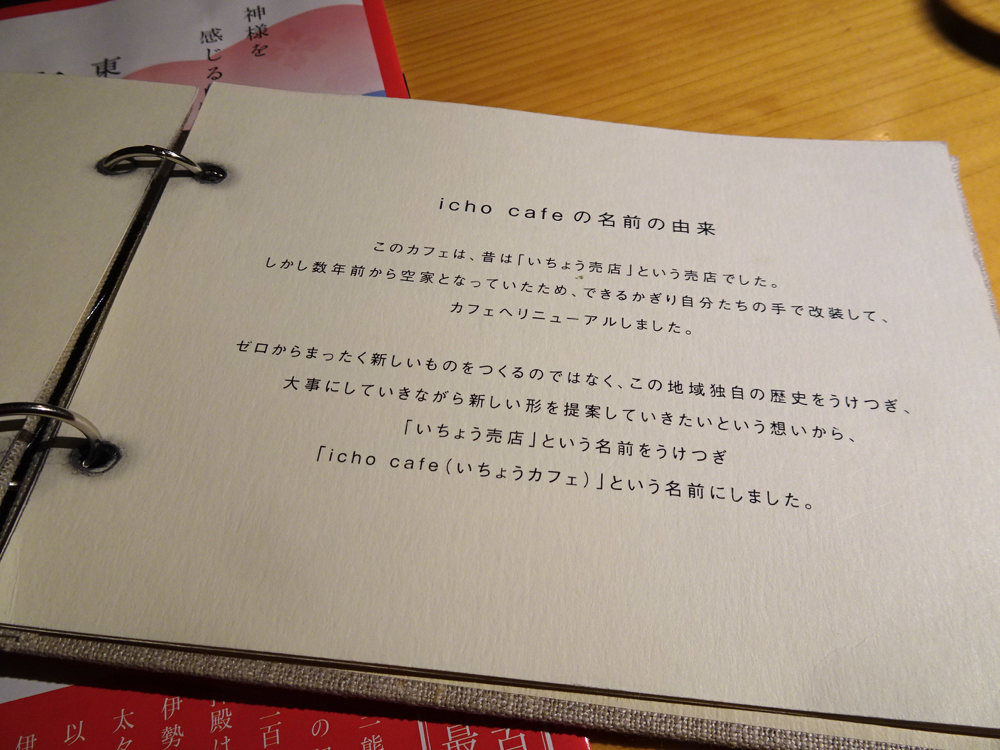 icho cafeの名前の由来
このカフェは、昔は「いちょう売店」という売店でした。
しかし数年前から空家となっていたため、できるかぎり自分たちの手で改装して、
カフェへリニューアルしました。
ゼロからまったく新しいものをつくるのではなく、この地域独自の歴史をうけつぎ、
大事にしていきながら新しい形を提案していきたいという想いから、
「いちょう売店」という名前をうけつぎ
「icho cafe(いちょうカフェ)」という名前にしました。
神様を
感じる
東